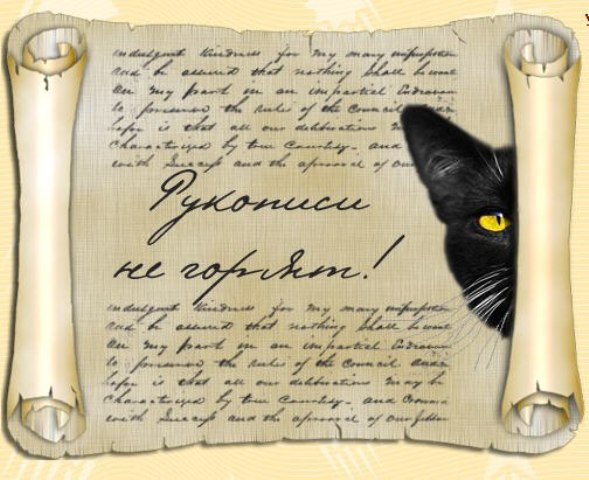 indulgent Kindness for my many
and be assured that nothing Shall be want
on my part in an impartial Endeavou
to preserve the rules of the Council
hope is that all our deliberations
characterized by true Courtesy- and
with Success and the approval of our
Рукописи
не горят!
indulgent Kindness for my many
and be assured that nothing Shall be want
on my part in an impartial Endeavou
to preserve the rules of the Council
hope is that all our deliberations may be
characterized by true Courtesy- and
with Success and the approval of our fellow